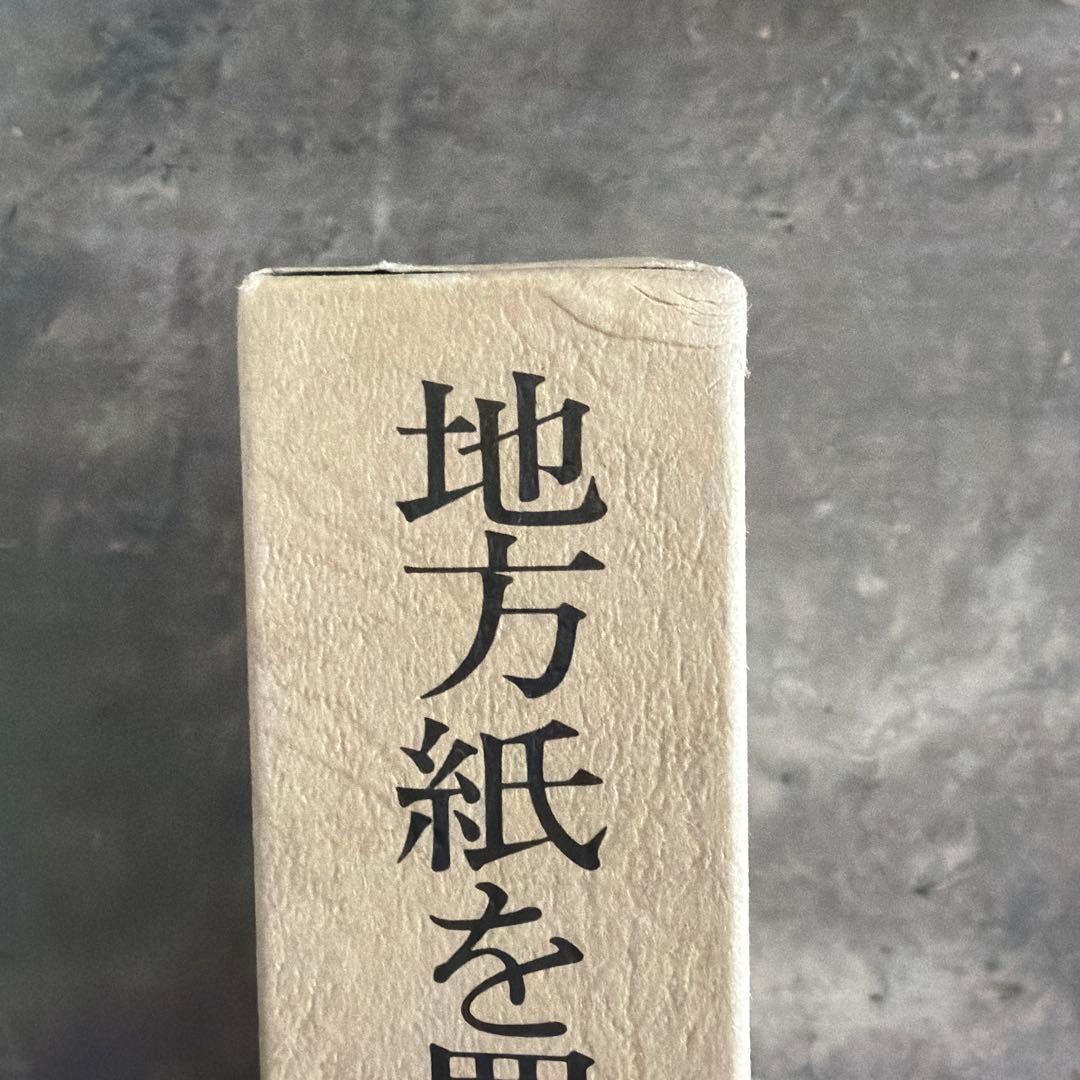 地方紙を